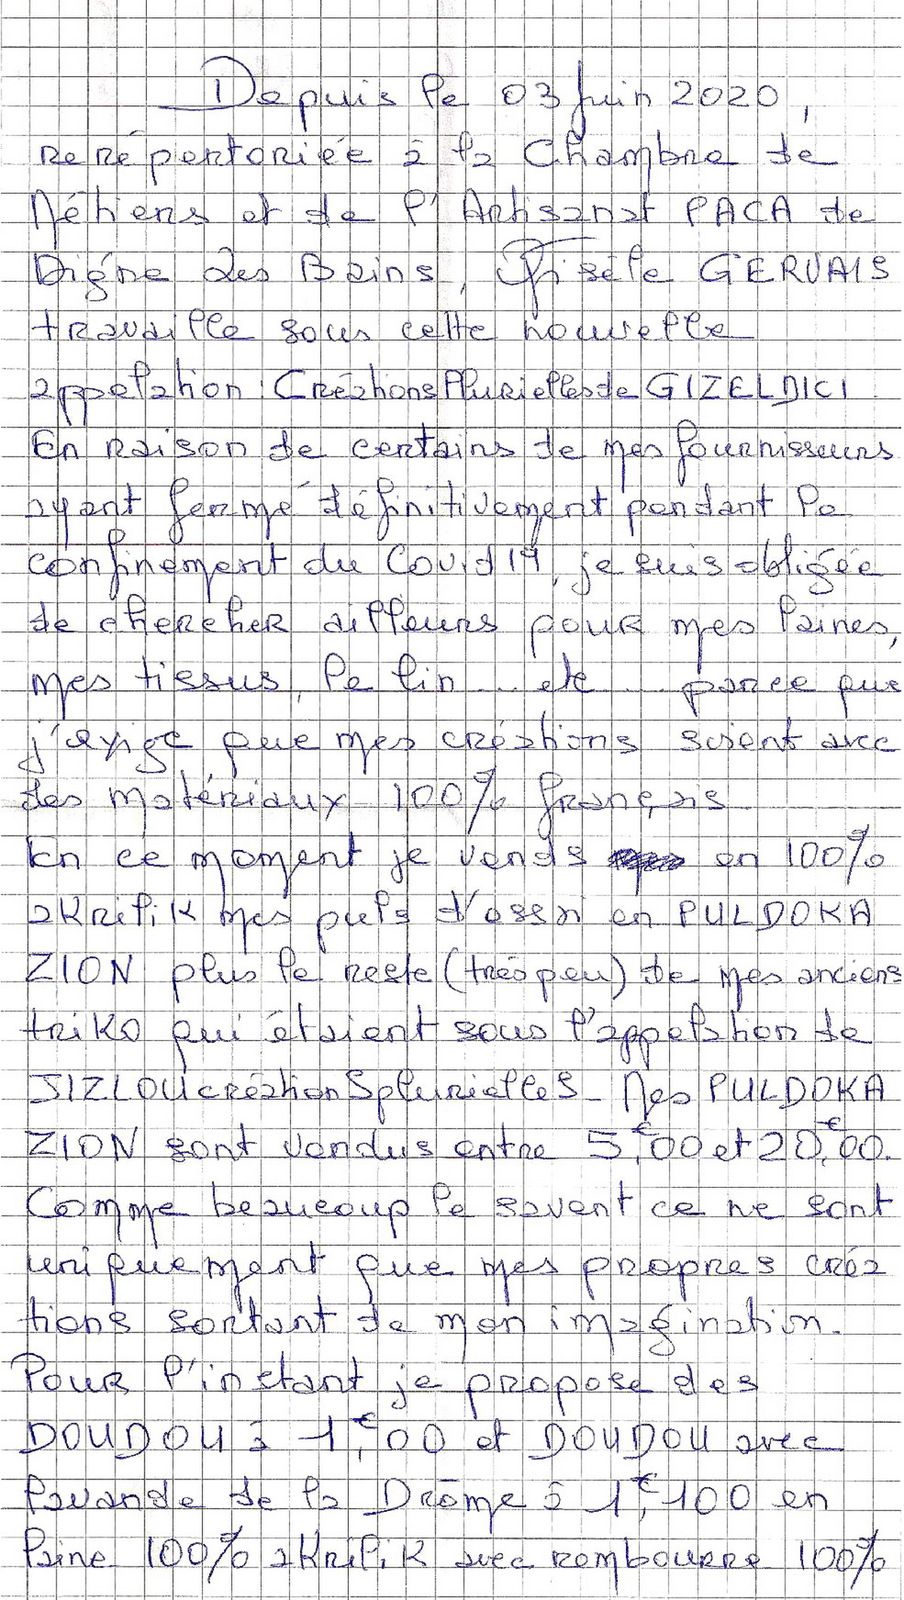 Depuis le 03 Juin 2020,
rerépertoriée à la Chambre de
Métiers et de l'Artisanat PACA de
Digne des Bains, Gisèle GERVAIS
travaille sous cette nouvelle
appelation : CréationsPluriellesde GIZELDICI.
En raison de certains de mes fournisseurs
ayant fermé définitivement pendant le
confinement du Covid 19, je suis obligée
de chercher ailleurs pour mes laines,
mes tissus, le lin... etc... parce que
j'exige que mes créations soient avec
des matériaux 100% français.
En ce moment je vends en 100%
akrilik mes puls d'essai en PULDOKA
ZION plus le reste (très peu) de mes anciens
triko qui étaient sous l'appelation de
JIZLOUcréationSplurielleS - Mes PULDOKA
ZION sont vendus entre 5,€00 et 20,€00.
Comme beaucoup le savent ce ne sont
uniquement que mes propres créa
tions sortant de mon imagination.
Pour l'instant je propose des
DOUDOU à 1,€00 et DOUDOU avec
lavande de la Drôme à 1,€100 en
laine 100% akrilik avec rembourre 100%